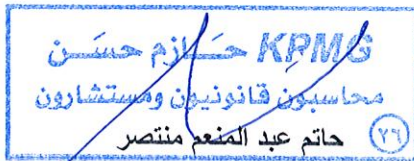 KPMG حـــازم حسَـــن
محاسبون قانونيون ومستشارون
حاتم عبد المنعم منتصر
(٢٦)